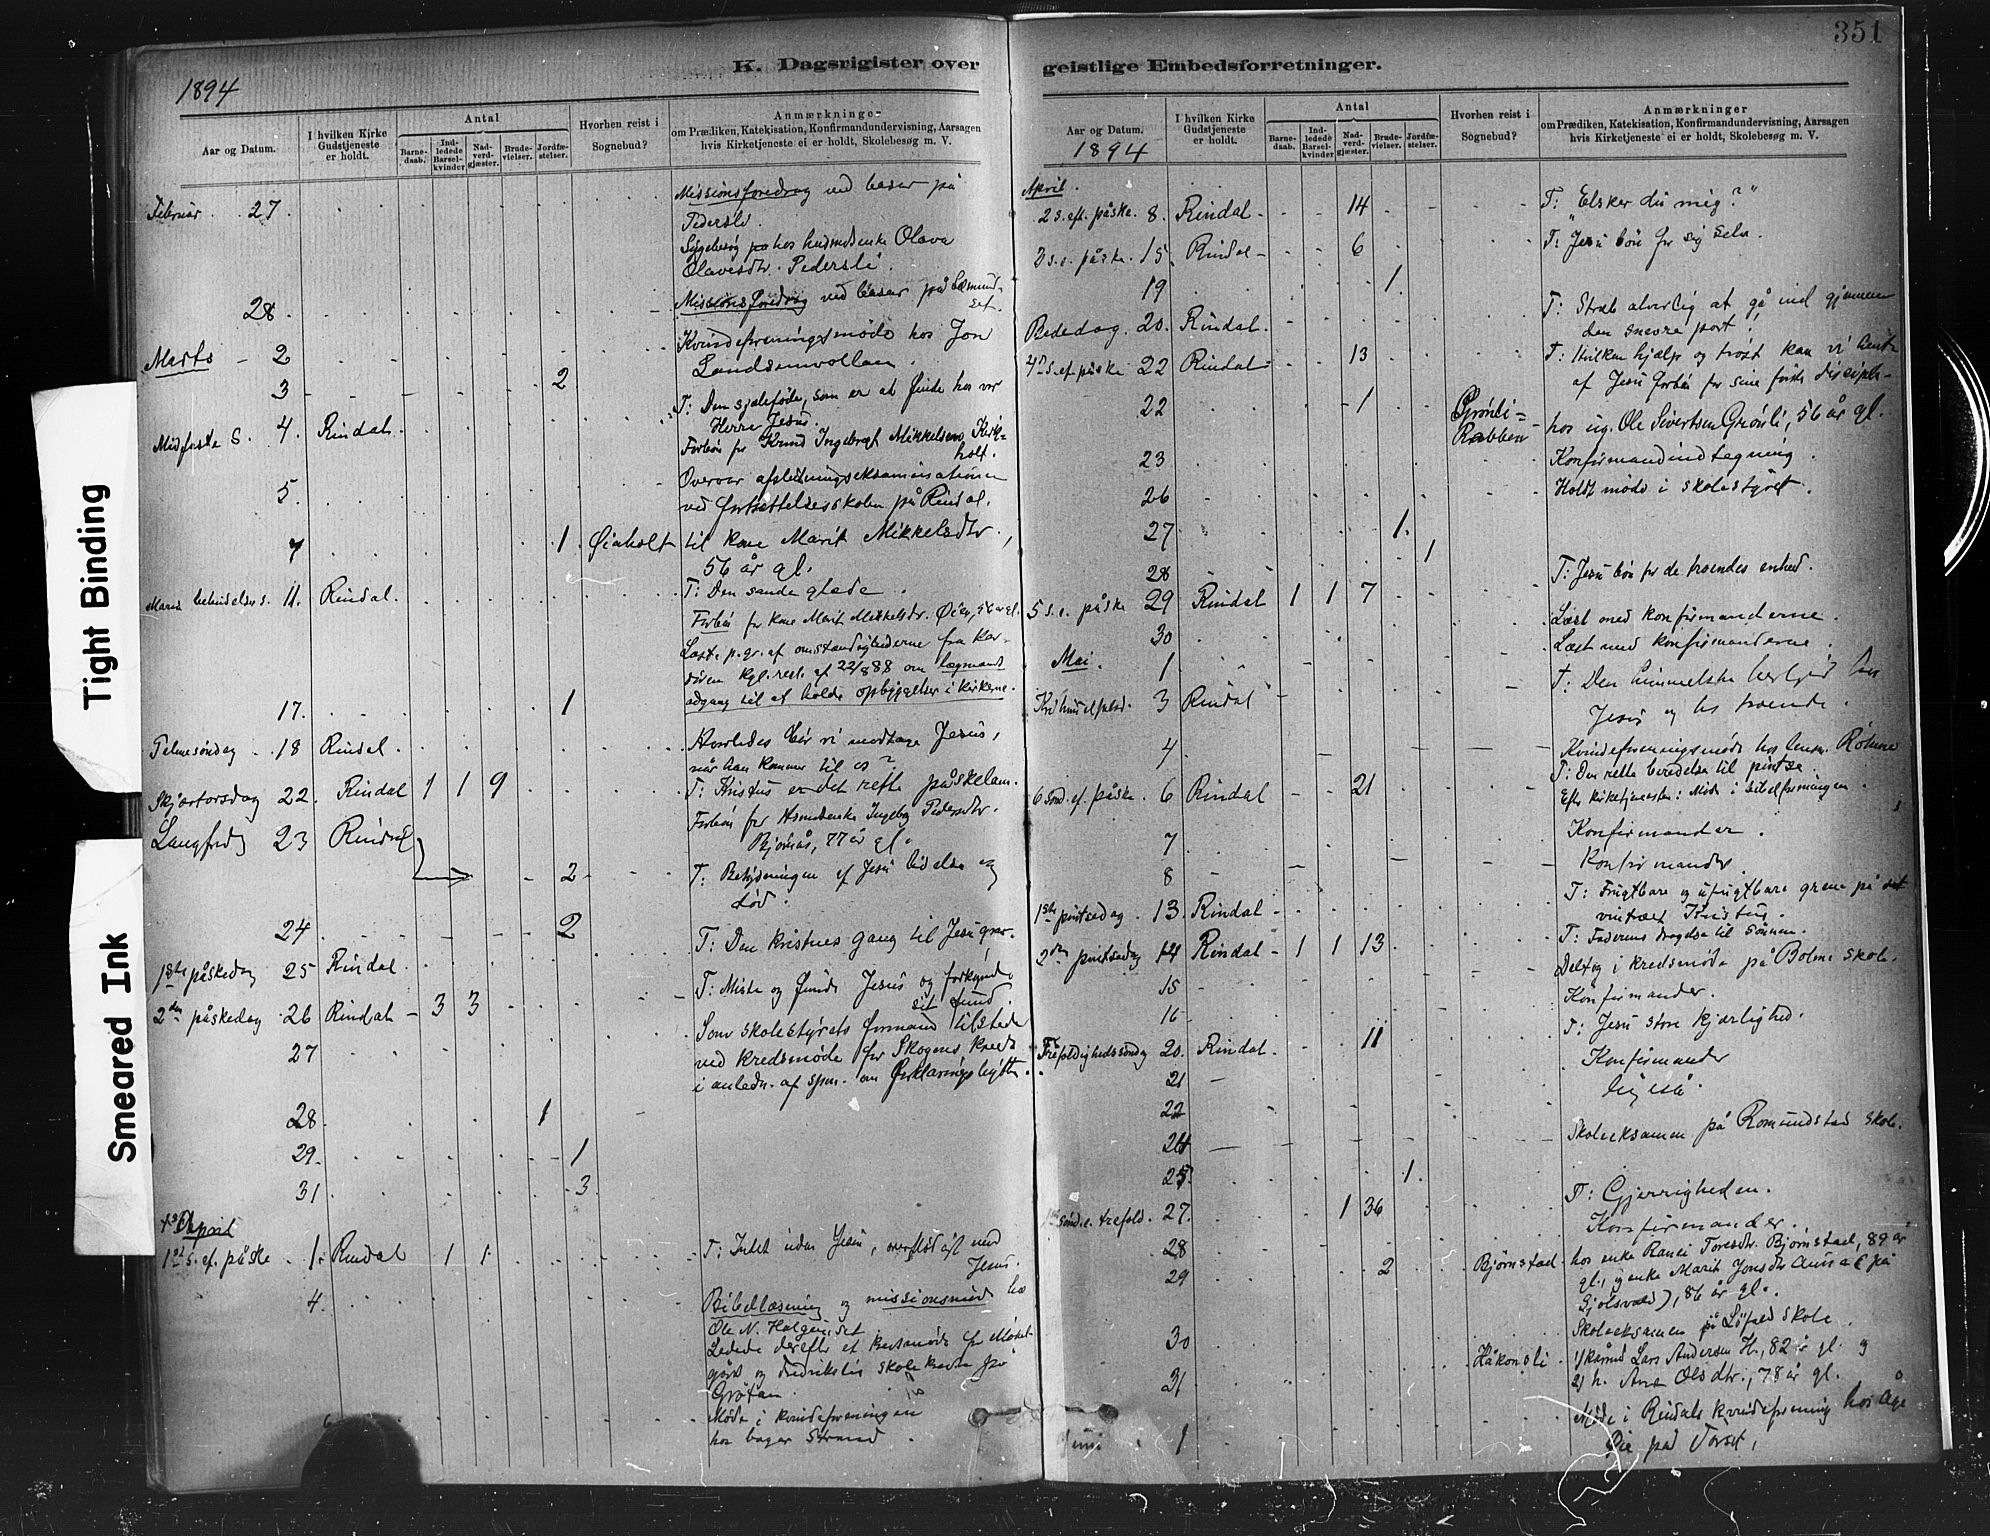 351
K. Dagsrigister over geistlige Embedsforretninger.
1894
Aar og Datum.
I hvilken Kirke Gudstjeneste er holdt.
Antal
Barnedaab.
Indledede Barselkvinder
Nadverdgjæster.
Brudevielser.
Jordfæstelser.
Hvorhen reist i Sognebud?
Anmærkninger
om Prædiken, Katekisation, Konfirmandundervisning, Aarsagen
hvis Kirketjeneste ei er holdt, Skolebesøg m. V.
Februar 27. Missionsforedrag ved basar på
Pedersli.
Sygebesøg hos husmdenke Olava
Olavesdtr. Pedersli.
28. Missionsforedrag ved basar på Sæmund-
set.
Marts 2 Kvindeforeningsmøde hos Jon
Landsemvollen.
3 2
Midfaste S. 4. Rindal. T: Den sjæleføde, som er at finde hos vor
Herre Jesus.
Forbøn for Knud Ingebregt Mikkelsen, Kirk-
holt.
5. Overvar afslutningseksaminationen
ved fortsættelsesskolen på Rindal.
7 1. Øiaholt til kone Marit Mikkelsdtr.,
56 år gl.
Mariæ bebudelses s. 11. Rindal. T: Den sande glæde.
Forbøn for kone Marit Mikkelsdr. Øien, 56 år gl.
Læst p. gr. af omstændighederne fra kor-
døren kgl. res. af 22/888 om lægmands
adgang til at holde opbyggelser i kirkerne.
17. 1
Palmesøndag 18 Rindal. Hvorledes bør vi modtage Jesus,
når han kommer til os?
Skjærtorsdag 22. Rindal 1 1 9 T: Kristus er det rette påskelam.
Forbøn for Hsmdenke Ingebog Pedersdtr.
Bjørnås, 77 år gl.
Langfredag 23 Rindal 2 T: Betydningen af Jesu lidelse og
død.
24 2
1ste påskedag 25 Rindal. T: Den kristnes gang til Jesu grav.
2den påskedag 26 Rindal 3 3 T: Miste og finde Jesus og forkynde
sit fund.
27 Som skolestyrets formand tilstede
ved kredsmøde for Skogens kreds
i anledn. af spm. om Forklaringsbytte.
28. 1
29. 1
31 3.
April
1ste s. ef. påske 1. Rindal 1 1 T: Intet uden Jesus, overflødigt med
Jesus.
4. Bibellæsning og missionsmøde hos
Ole N. Helgemset
Ledede derefter et kredsmøde for Møkel-
gård og Fredriksli skolekreds på
Grøtan.
6 Møde i kvindeforeningen
hos bager Strand.
Aar og Datum.
1894
I hvilken Kirke Gudstjeneste er holdt.
Antal
Barnedaab.
Indledede Barselkvinder
Nadverdgjæster.
Brudevielser.
Jordfæstelser.
Hvorhen reist i Sognebud?
Anmærkninger
om Prædiken, Katekisation, Konfirmandundervisning, Aarsagen
hvis Kirketjeneste ei er holdt, Skolebesøg m. V.
April.
2 s. eft. påske. 8. Rindal 14 T: "Elsker du mig?"
3 s. e. påske. 15. Rindal 6 T: Jesu bøn for sig selv.
19 1
Bededag. 20. Rindal. T: Stræb alvorlig at gå ind gjennem
den snevre port!
4de s. ef. påske 22 Rindal 13 T: Hvilken hjælp og trøst kan vi hente
af Jesu forbøn for sine første disciple
22 1 Grønli-
Rabben hos ug. Ole Sivertsen Grønli, 56 år gl.
23 Konfirmandindtegning.
26 Holdt møde i skolestyret.
27 1.
28 1
5 s. e. påske 29 Rindal 1 1 7 T: Jesu bøn for de troendes enhed.
30 Læst med konfirmanderne.
Mai. 1 Læst med konfirmanderne.
Kristi himmelfartsd. 3 Rindal T: Den himmelske herlighed hos
Jesus og hos troende.
4 Kvindeforeningsmøde hos lensm. Rølme
6 sønd. ef. påske. 6 Rindal 21 T: Den rette beredelse til pintse.
Efter kirketjenesten: Møde i bibelforeningen.
7 Konfirmander.
8 Konfirmander.
1ste pintsedag. 13. Rindal T: Frugtbare og ufrugtbare grene på det
vintræet Kristus.
2den pintsedag 14 Rindal 1 1 13 T: Faderens dragelse til Sønnen.
15 Deltog i kredsmøde på Bolme skole.
16 Konfirmander.
Trefoldighedssøndag 20. Rindal 11 T: Jesu store kjærlighed.
21 Konfirmander
22
24 Skoleeksamen på Romundstad skole.
25. 1.
1ste sønd. e. trefold. 27. 1 36 T: Gjerrigheden.
28 Konfirmander.
29 2 Bjørnstad. hos enke Ranei Toresdtr. Bjørnstad, 89 år
gl., og enke Marit Jonsdtr Aune (på
Gjølsvold), 86 år gl.
30 Skoleeksamen på Løfald skole.
31 Håkonsli. 1) kårmd Lars Andersen H., 82 år gl. og
2) h. Ane Olsdtr., 78 år gl.
Juni 1 Møde i Rindals kvindeforening hos Åge
på Torset.
Tight Binding
Smeared Ink